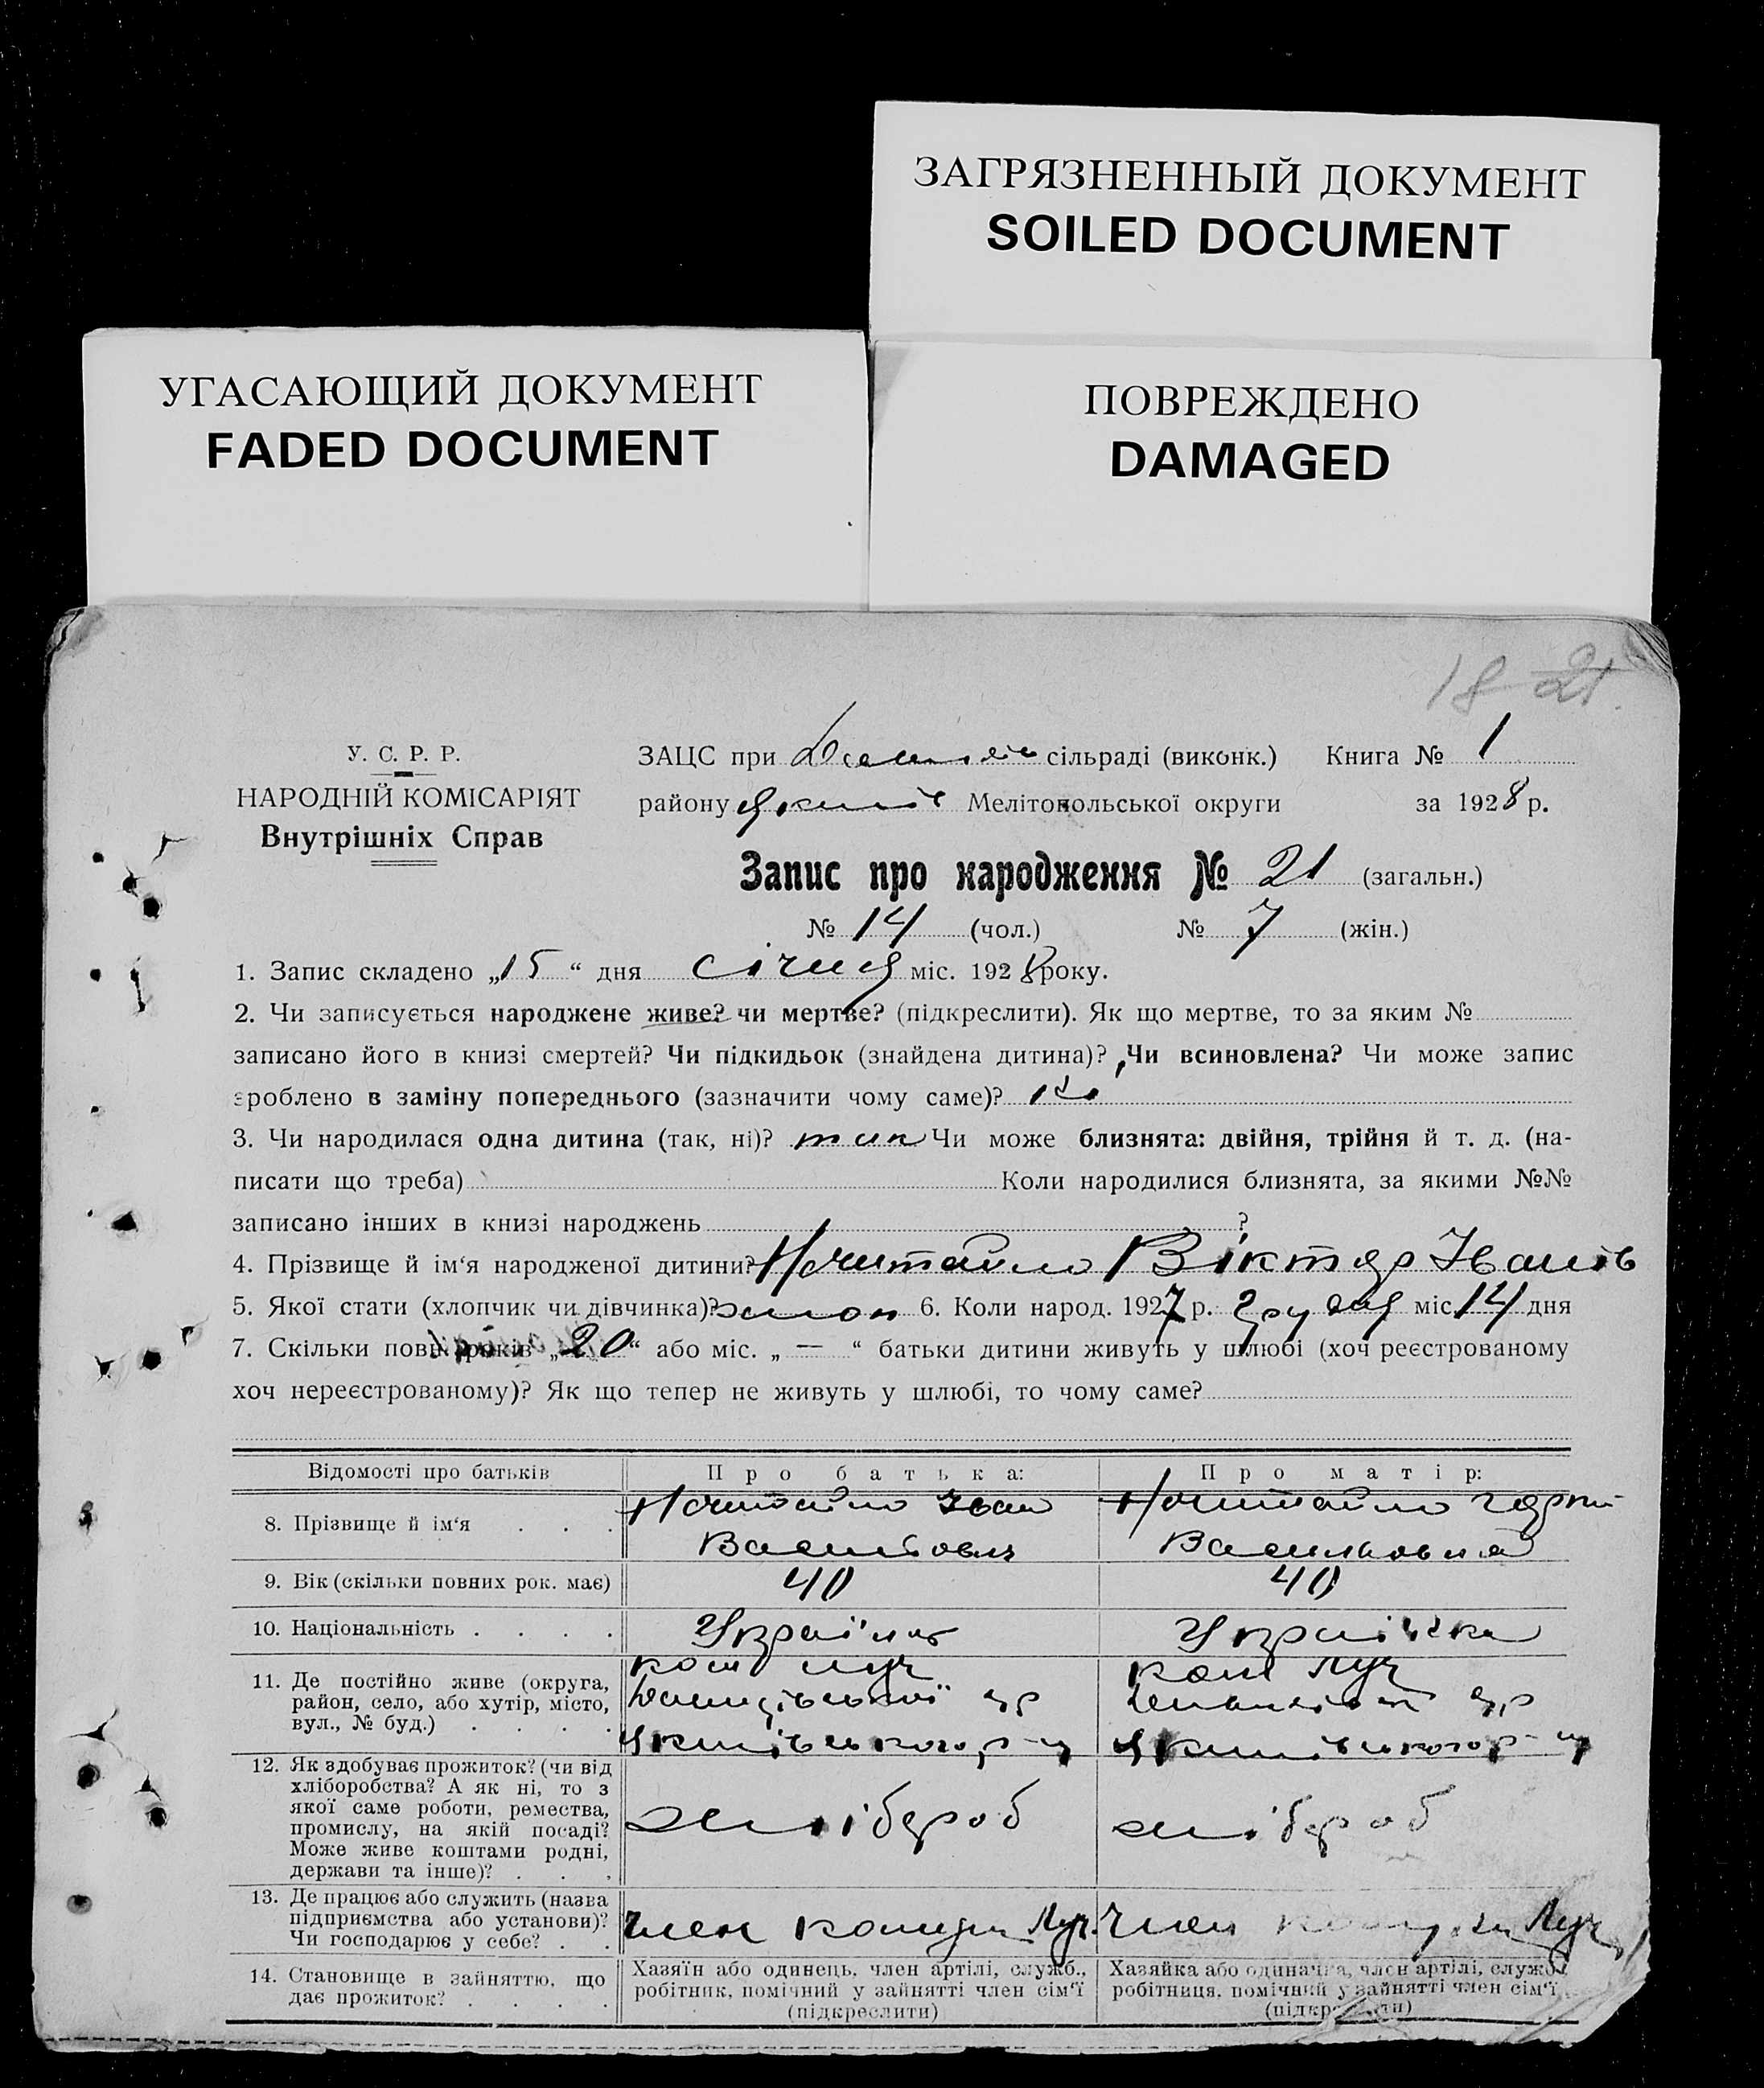 ЗАГРЯЗНЕННЫЙ ДОКУМЕНТ
SOILED DOCUMENT
УГАСАЮЩИЙ ДОКУМЕНТ
FADED DOCUMENT
ПОВРЕЖДЕНО
DAMAGED
18 21
У. С. Р. Р.
НАРОДНІЙ КОМІСАРІЯТ
Внутрішніх Справ
ЗАЦС при сільраді (виконк.) Книга № 1
району Мелітопольської округи за 1928 р.
Запис про народження № 21 (загальн.)
№ 14 (чол.) № 7 (жін.)
1. Запис складено „15“ дня січня міс. 1928 року.
2. Чи записується народжене живе? чи мертве? (підкреслити). Як що мертве, то за яким №
записано його в книзі смертей? Чи підкидьок (знайдена дитина)? Чи всиновлена? Чи може запис
зроблено в заміну попереднього (зазначити чому саме)? ні
3. Чи народилася одна дитина (так, ні)? так Чи може близнята: двійня, трійня й т. д. (на-
писати що треба) Коли народилися близнята, за якими №№
записано інших в книзі народжень ?
4. Прізвище й ім‘я народженої дитини? Ночитайло Віктор Іванів
5. Якої стати (хлопчик чи дівчинка)? 6. Коли народ. 1927 р. грудня міс. 14 дня
7. Скільки повн. років „20“ або міс. „—“ батьки дитини живуть у шлюбі (хоч реєстрованому
хоч нереєстрованому)? Як що тепер не живуть у шлюбі, то чому саме?
Відомості про батьків Про батька: Про матір:
8. Прізвище й ім‘я Ночитайло Іван Ночитайло
Васильович Васильовна
9. Вік (скільки повних рок. має) 40 40
10. Національність Українець Українка
11. Де постійно живе (округа, ком Луч ком Луч
район, село, або хутір, місто,
вул., № буд.) Якимівського р-ну Якимівського р-ну
12. Як здобуває прожиток? (чи від
хліборобства? А як ні, то з
якої саме роботи, ремества, хлібороб хлібороб
промислу, на якій посаді?
Може живе коштами родні,
держави та інше)?
13. Де працює або служить (назва
підприємства або установи)? Член комуни Луч. Член комуни Луч
Чи господарює у себе?
14. Становище в зайняттю, що Хазяїн або одинець, член артілі, служб., Хазяйка або одиначка, член артілі, служб.,
дає прожиток? робітник, помічний у зайнятті член сім‘ї робітниця, помічний у зайнятті член сім‘ї
(підкреслити) (підкреслити)